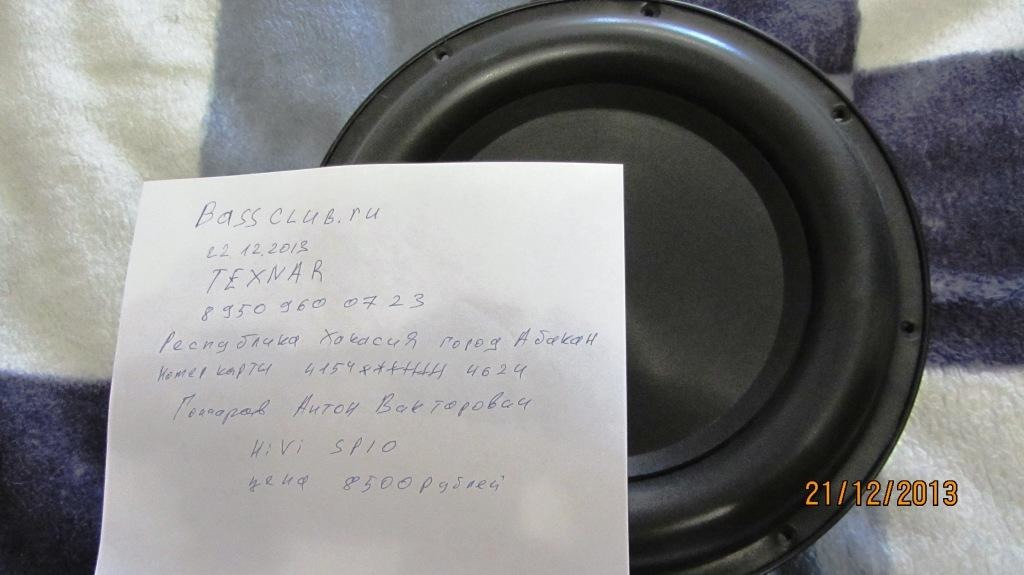 Bassclub.ru
22.12.2013
TEXNAR
8950 960 07 23
Республика Хакасия город Абакан
Номер карты 4154******** 4624
Антон Викторович
HiVi SP10
цена 8500 рублей
21/12/2013